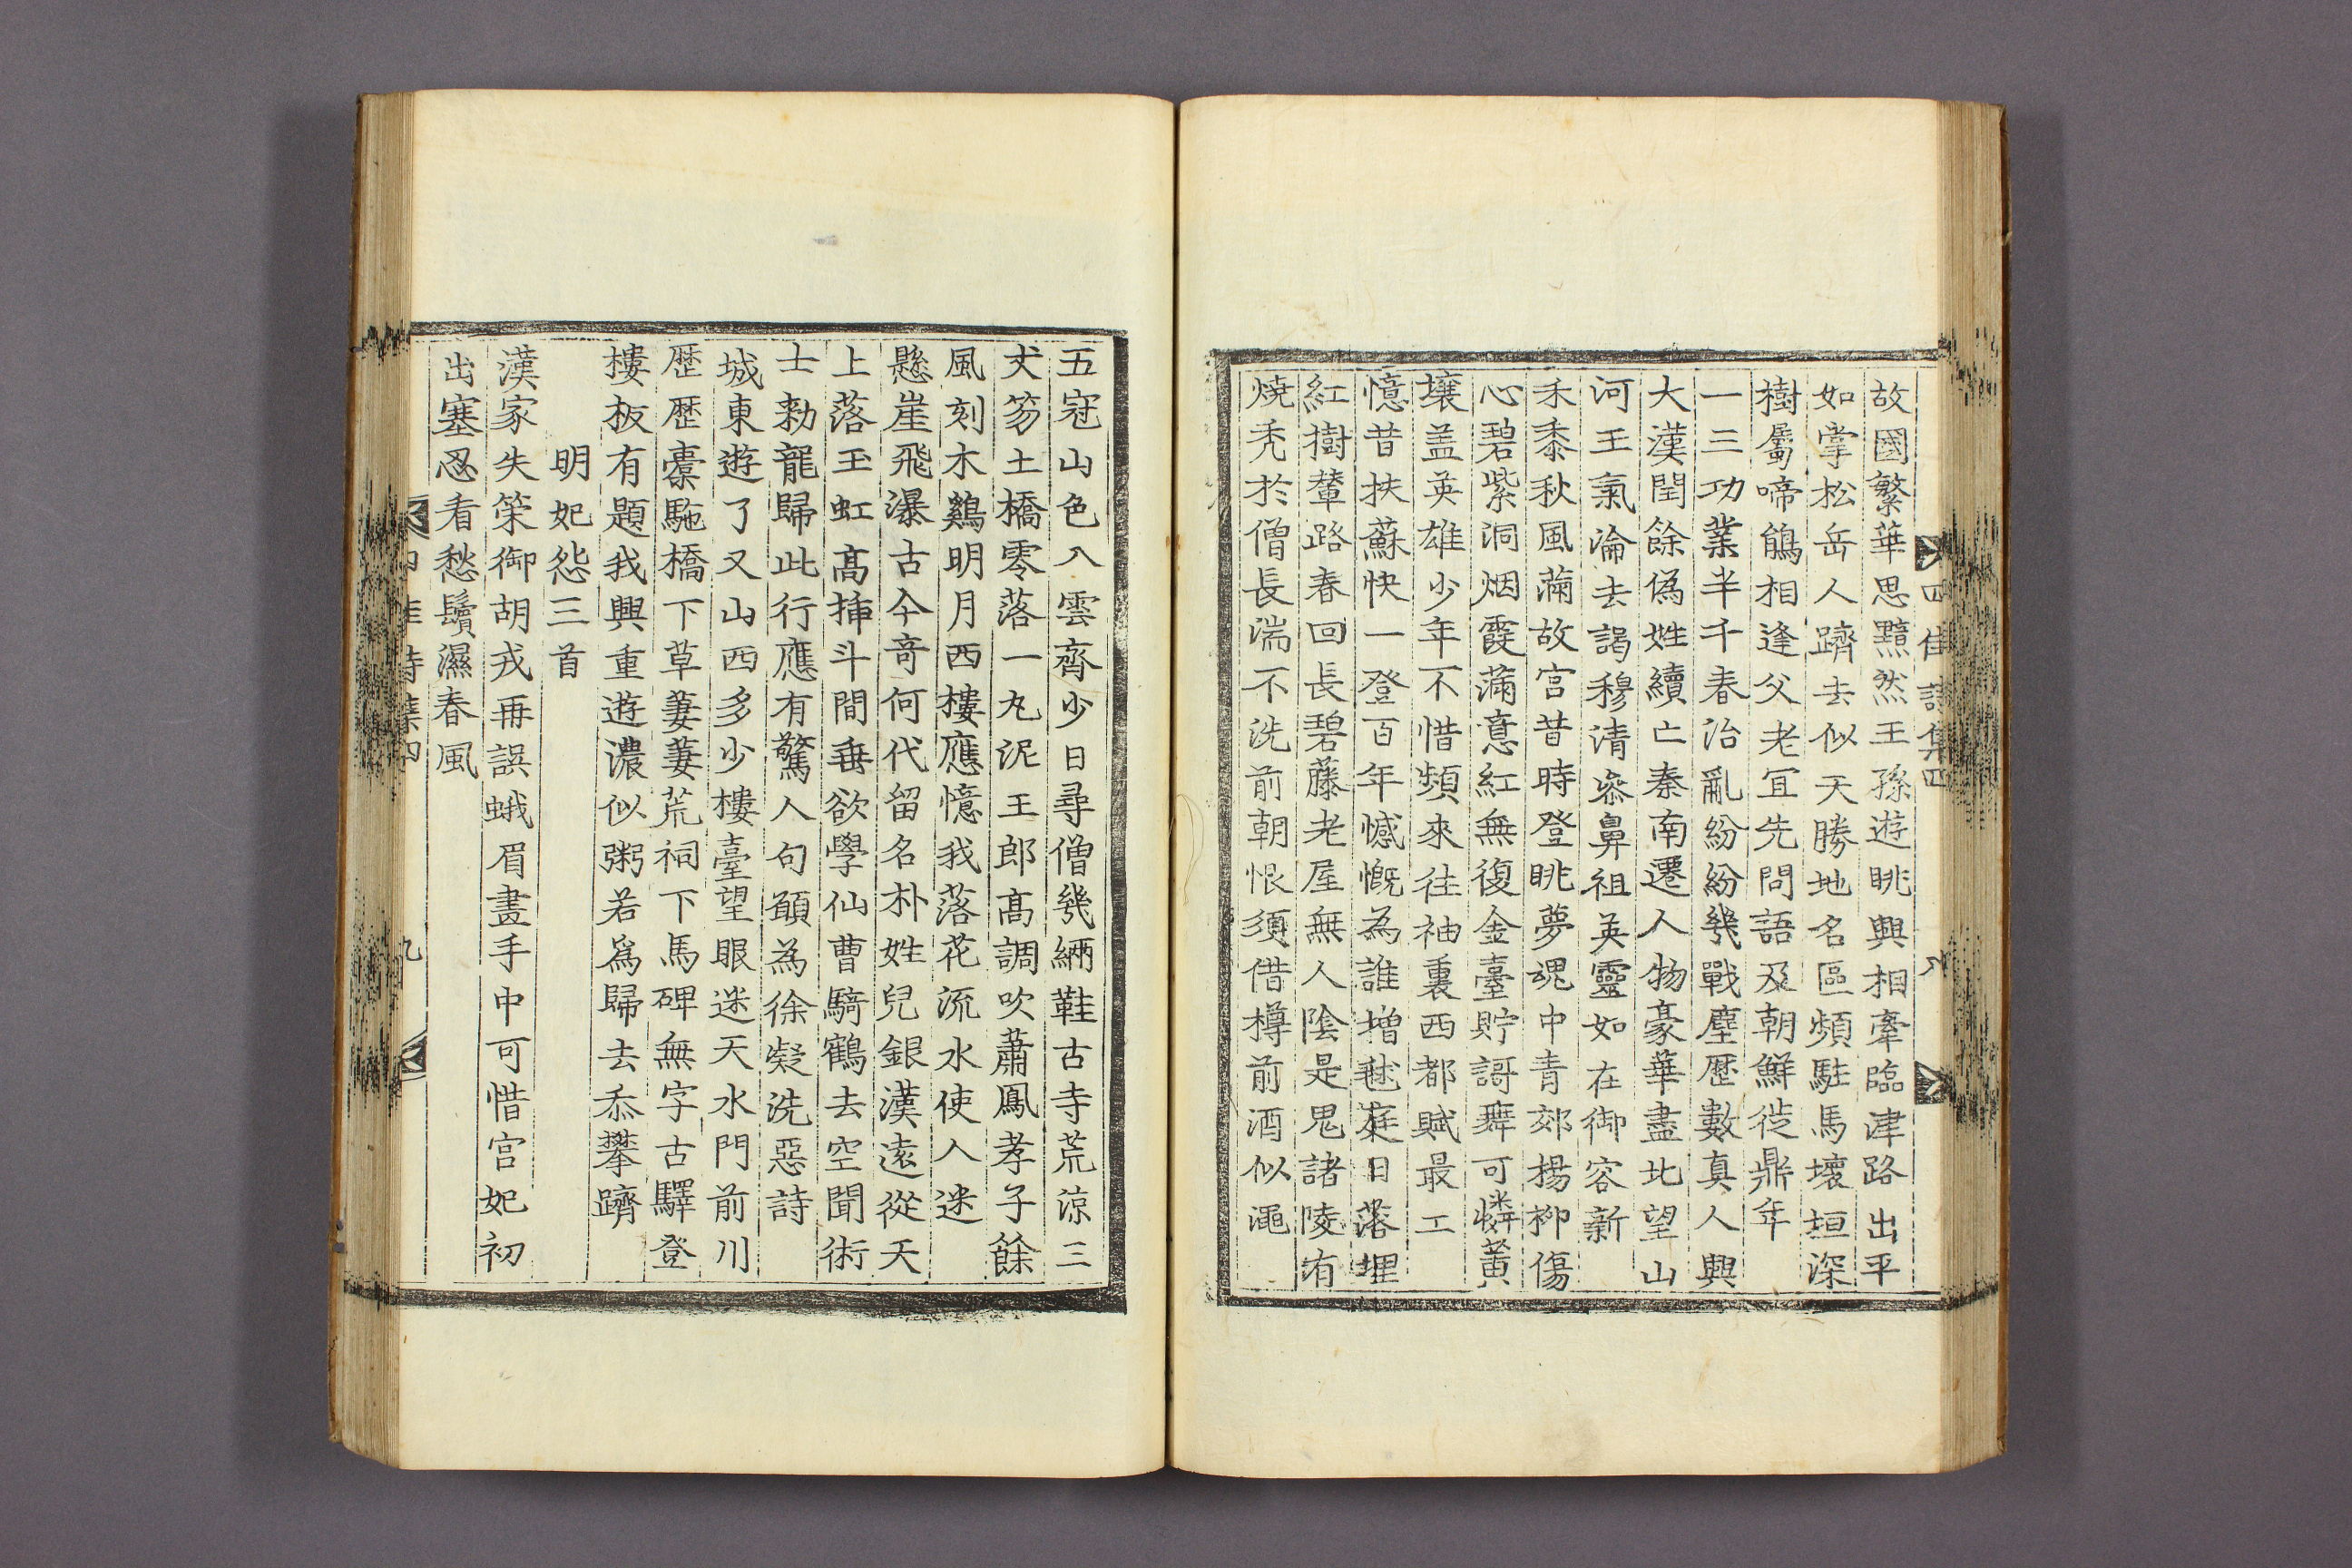 四佳詩集四
八
故國繁華思黯然王孫遊眺興相牽臨津路出平
如掌松岳人躋去似天勝地名區頻駐馬壞垣深
樹屬啼鵑相逢父老冝先問語及朝鮮徙鼎年
一三功業半千春治亂紛紛幾戰塵歷數真人興
大漢閏餘偽姓續亡秦南遷人物豪華盡北望山
河王氣淪去謁穆清叅鼻祖英靈如在御容新
禾黍秋風滿故宮昔時登眺夢魂中青郊楊柳傷
心碧紫洞烟霞滿意紅無復金臺貯謌舞可憐黃
壤盖英雄少年不惜頻來徃袖裏西都賦最工
憶昔扶蘇快一登百年憾慨為誰增毬庭日落埋
紅樹輦路春回長碧藤老屋無人陰是鬼諸陵有
燒禿於僧長湍不洗前朝恨須借樽前酒似澠
五冠山色入雲齊少日尋僧幾緉鞋古寺荒涼三
犬笏土橋零落一丸泥王郎高調吹蕭鳳孝子餘
風刻木鷄明月西樓應憶我落花流水使人迷
懸崖飛瀑古今竒何代留名朴姓兒銀漢遠從天
上落玉虹高揷斗間垂欲學仙曹騎鶴去空聞術
士勑龍歸此行應有驚人句願為徐凝洗惡詩
城東遊了又山西多少樓臺望眼迷天水門前川
歷歷橐駞橋下草萋萋荒祠下馬碑無字古驛登
樓板有題我興重遊濃似粥若爲歸去忝攀躋
明妃怨三首
漢家失策御胡戎再誤蛾眉畫手中可惜宮妃初
出塞忍看愁鬢濕春風
四佳詩集四
九